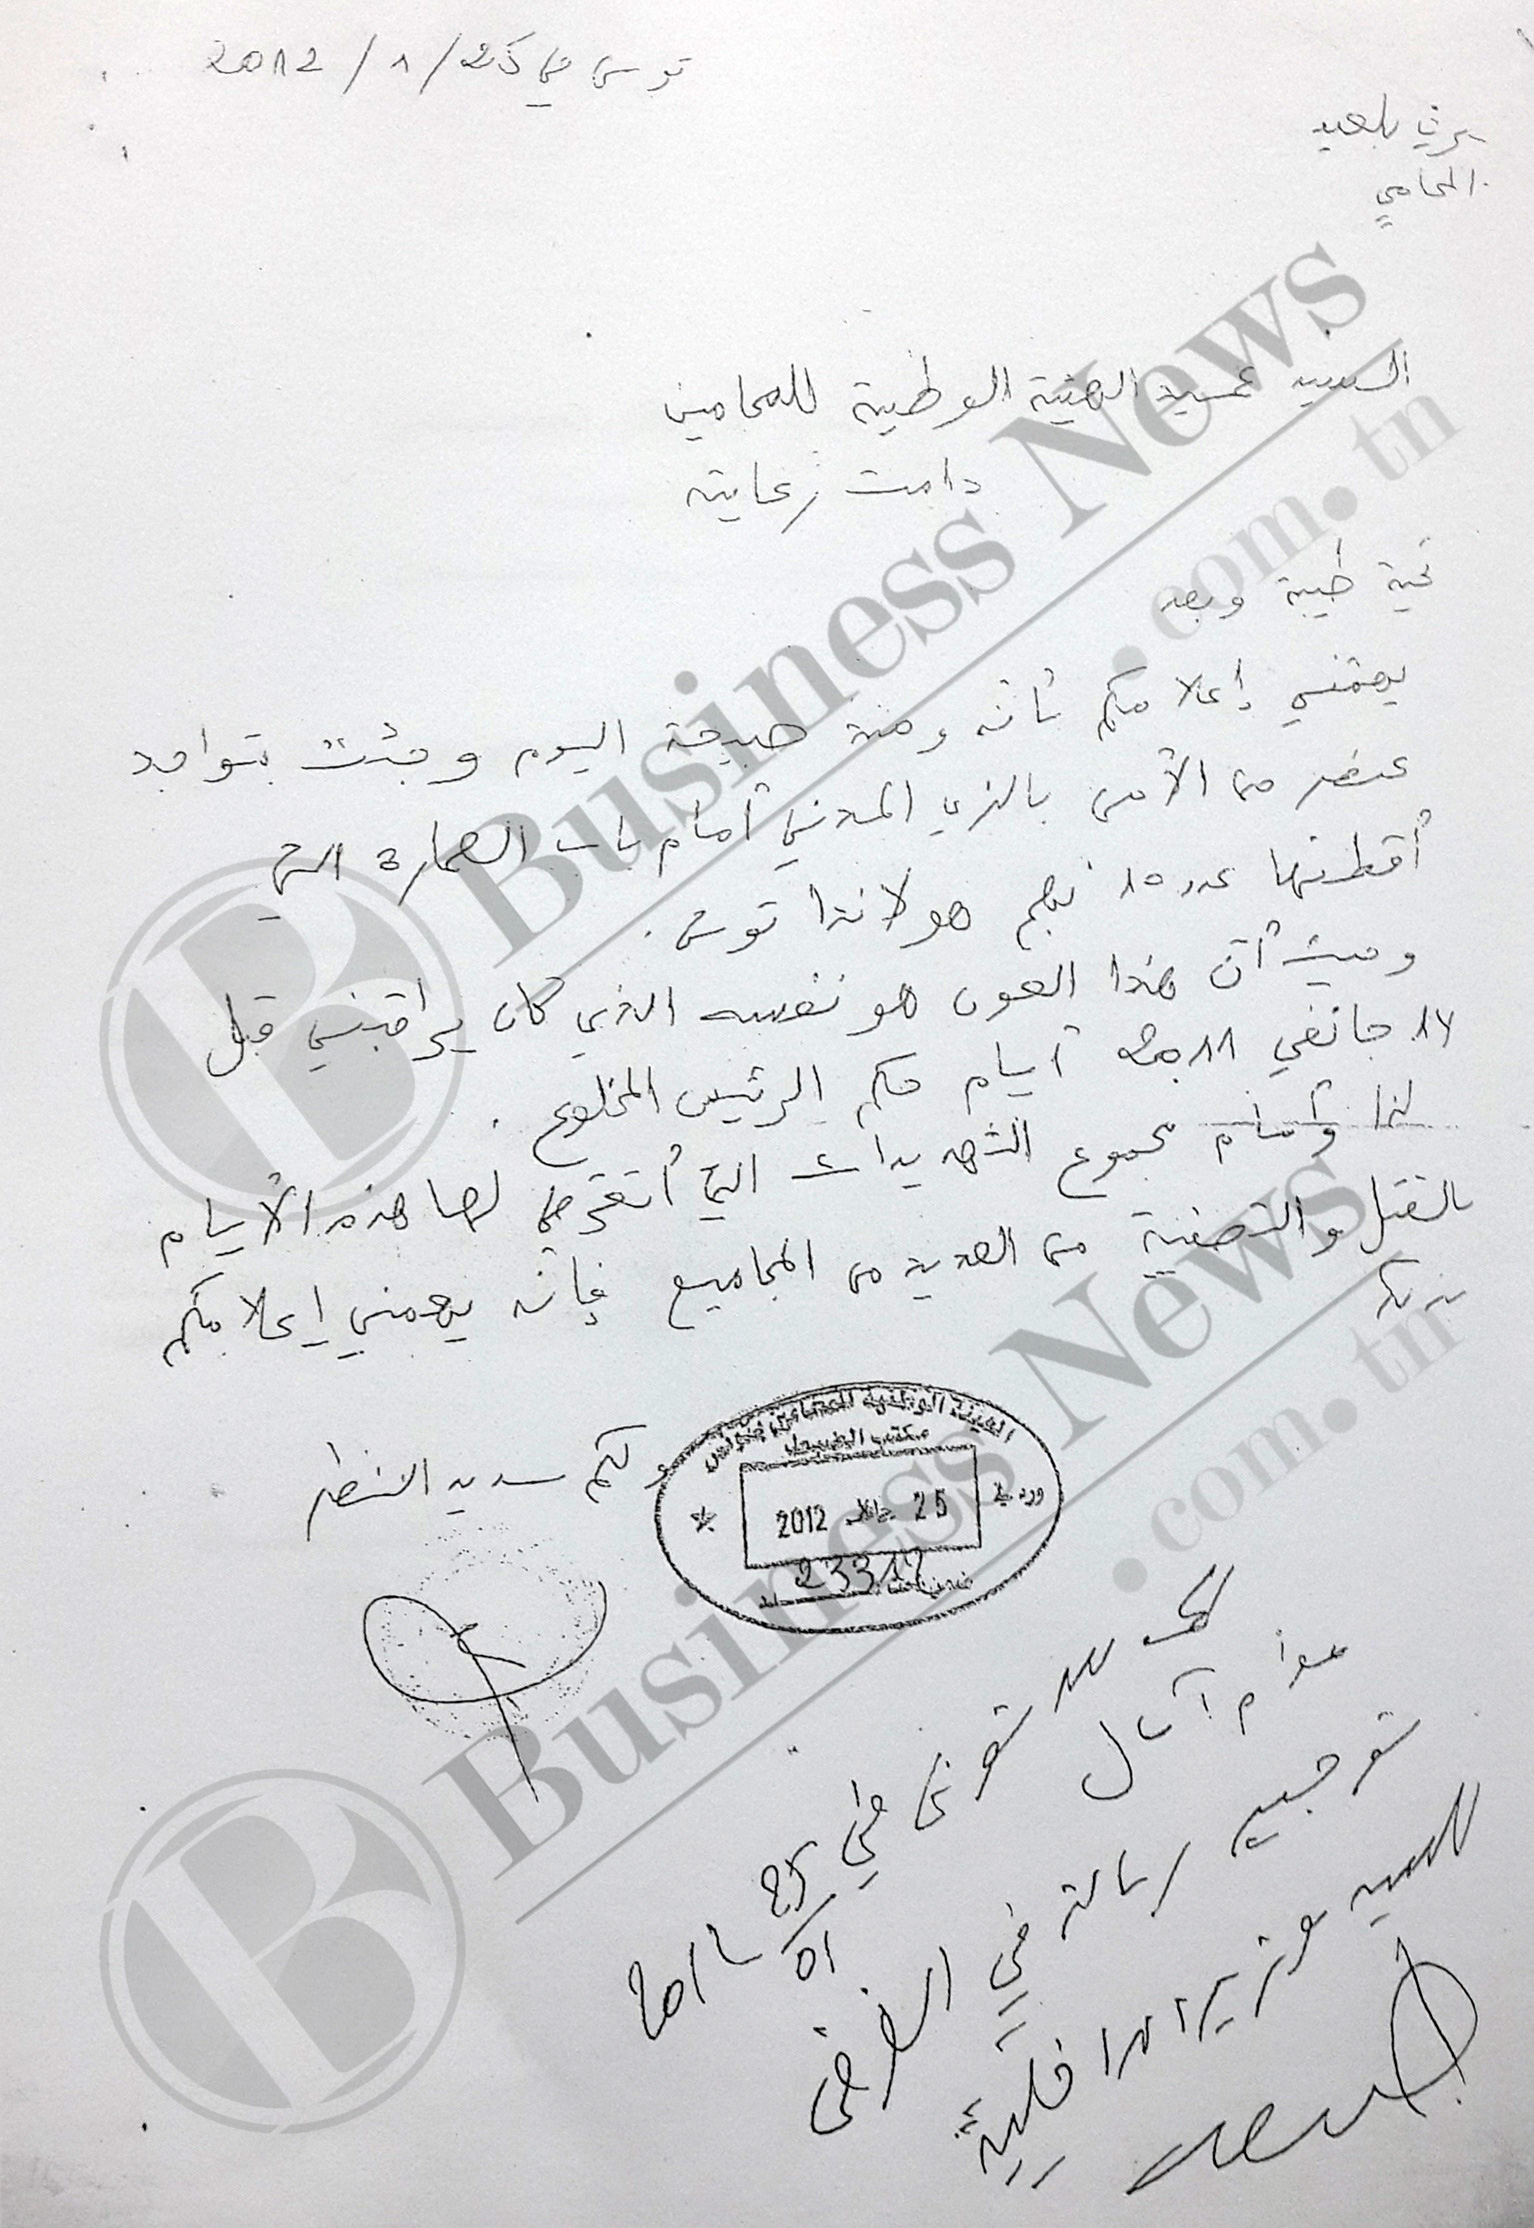 تونس في 25/1/2012
شكري بلعيد
المحامي
السيد عميد الهيئة الوطنية للمحامين
دامت رعايته
تحية طيبة وبعد
يهمني إعلامكم بأنه ومنذ صبيحة اليوم وجئت بتواجد
عنصر من الأمن بالزي المدني أمام باب العمارة التي
أقطنها عدد 10 نهج هولاندا تونس.
وحيث أن هذا العون هو نفسه الذي كان يراقبني قبل
14 جانفي 2011 أيام حكم الرئيس المخلوع.
لذا وأمام مجموع التهديدات التي أتعرض لها هذه الأيام
بالقتل والتصفية من العديد من المجاميع فإنه يهمني إعلامكم
بذلكم
ولكم سديد النظر
الهيئة الوطنية للمحامين بتونس
مكتب الضبط
ورد في
25 جانفي 2012
23312
تونس في 25/01/2012
توجيه رسالة في الغرض
للسيد وزير الداخلية
Business News
.com.tn
Business News
.com.tn
B
B